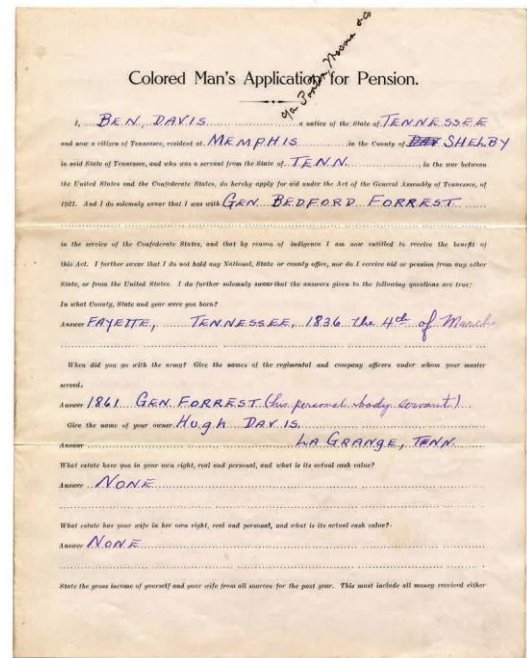 Colored Man's Application for Pension.
I, BEN DAVIS a native of the State of TENNESSEE
and now a citizen of Tennessee, resident at MEMPHIS in the County of SHELBY
in said State of Tennessee, and who was a servant from the State of TENN. in the war between
the United States and the Confederate States, do hereby apply for aid under the Act of the General Assembly of Tennessee, of
1921. And I do solemnly swear that I was with GEN. BEDFORD FORREST
in the service of the Confederate States, and that by reason of indigence I am now entitled to receive the benefit of
this Act. I further swear that I do not hold any National, State or county office, nor do I receive aid or pension from any other
State, or from the United States. I do further solemnly swear that the answers given to the following questions are true:
In what County, State and year were you born?
Answer FAYETTE, TENNESSEE, 1836 the 4th of March
When did you go with the army? Give the names of the regimental and company officers under whom your master
served.
Answer 1861 GEN. FORREST (his personal body servant)
Give the name of your owner Hugh DAVIS
Answer LA GRANGE, TENN.
What estate have you in your own right, real and personal, and what is its actual cash value?
Answer NONE
What estate has your wife in her own right, real and personal, and what is its actual cash value?
Answer NONE
State the gross income of yourself and your wife from all sources for the past year. This must include all money received either